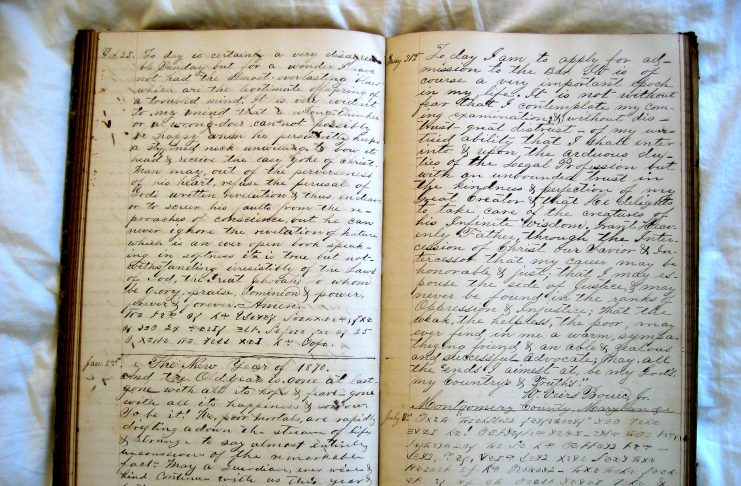 To day is certainly a very disagreea-
ble Sunday but for a wonder I have
not had the almost everlasting
which are the legitimate offspring of
a troubled mind. It is very evident
to my mind that a wrong thinker
or a wrong-doer can not possibly
be happy when he persistently keeps
a stiff neck unwilling to bow its
head & receive the easy yoke of Christ.
Man may, out of the perverseness
of his heart, refuse the perusal of
God's written revelation & thus endeav-
or to screen his faults from the re-
proaches of conscience, but he can
never ignore the revelation of nature
which is an ever open book speak-
ing in softness it is true but not-
withstanding irresistibly of the Laws
of God, the Great to whom
be Glory, praise, Dominion & power,
forever & forever. Amen.
Jan 2nd
The New Year of 1870.
And the Old Year is gone at last
gone with all its hopes & fears - gone
with all its happiness & sorrow.
So be it! We, poor mortals, are rapidly
drifting adown the stream of life
& strange to say almost entirely
unconscious of the remarkable
fact. May a Guardian, ever wise &
kind continue with us this year &
May 31st
To day I am to apply for ad-
mission to the Bar. It is of
course a very important epoch
in my life. It is not without
fear that I contemplate my com-
ing examination; & without dis-
trust - great distrust - of my un-
tried ability that I shall enter
into & upon the arduous du-
ties of the Legal Profession but
with an unbounded trust in
the kindness & perfection of my
Great Creator & that He delights
to take care of the creatures of
his Infinite Wisdom. Grant Heav-
enly Father through the Inter-
cession of Christ Our Savior & In-
tercessor that my career may be
honorable & just; that I may es-
pouse the side of Justice & may
never be found in the ranks of
Oppression & Injustice; that the
weak, the helpless, the poor, may
ever find in me a warm, sympa-
thizing friend & an able & zealous
and successful advocate; may, all
the Ends I aimest at, be my God's
my Country's & Truth's"
W. Veirs Bouic, Jr.
Montgomery County, Maryland
July 8